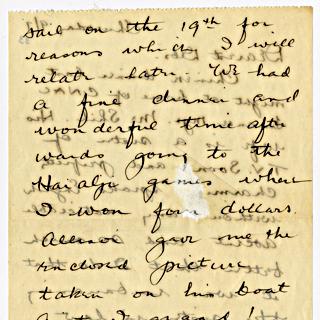 sail on the 19th for
reasons which I will
relate later. We had
a fine dinner and
wonderful time after
wards going to the
Hai alji games where
I won four dollars.
gave me the
enclosed picture
taken on his boat